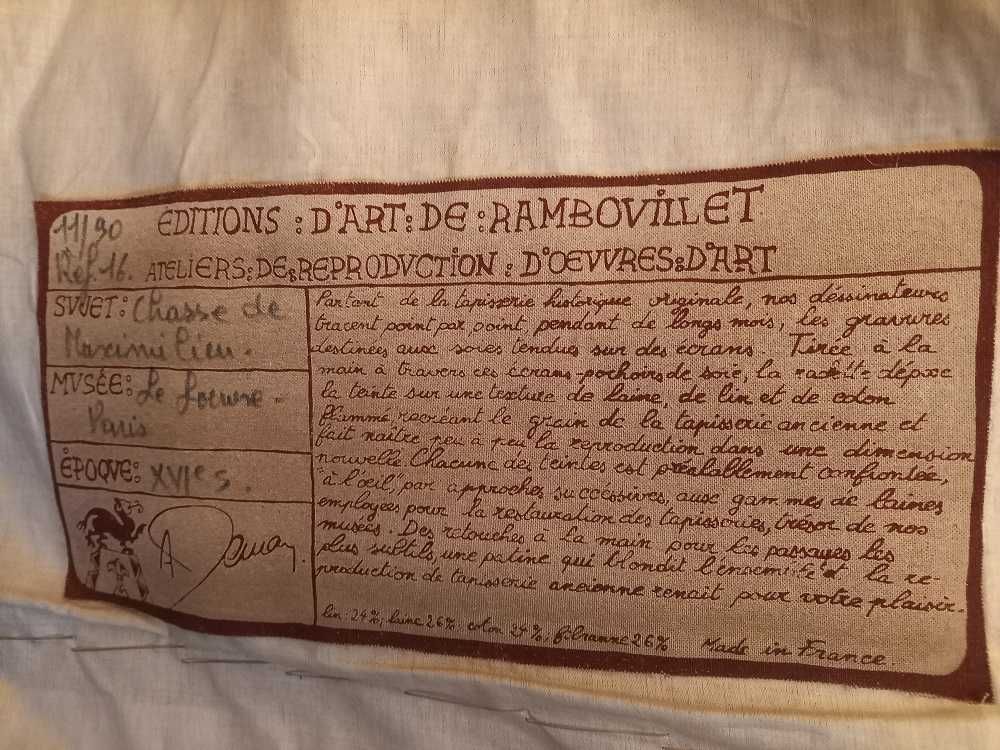 11/90
Réf. 16.
EDITIONS : D'ART : DE : RAMBOVILLET
ATELIERS : DE : REPRODVCTION : D'OEVVRES : D'ART
SVJET : Chasse de
Maximilien.
MVSÉE : Le Louvre -
Paris
ÉPOQVE : XVIe s.
Partant de la tapisserie historique originale, nos déssinateurs
tracent point par point, pendant de longs mois, les gravures
destinées aux soies tendues sur des écrans. Tirée à la
main à travers ces écrans-pochoirs de soie, la raclette dépose
la teinte sur une texture de laine, de lin et de coton
flammé recréant le grain de la tapisserie ancienne et
fait naître peu à peu la reproduction dans une dimension
nouvelle. Chacune des teintes est préalablement confrontée,
"à l'oeil", par approches succéssives, aux gammes de laines
employées pour la restauration des tapisseries, trésor de nos
musées. Des retouches à la main pour les passages les
plus subtils, une patine qui blondit l'ensemble et la re-
production de tapisserie ancienne renait pour votre plaisir.
lin : 24%, laine 26%, coton 24%, fibranne 26% Made in France.